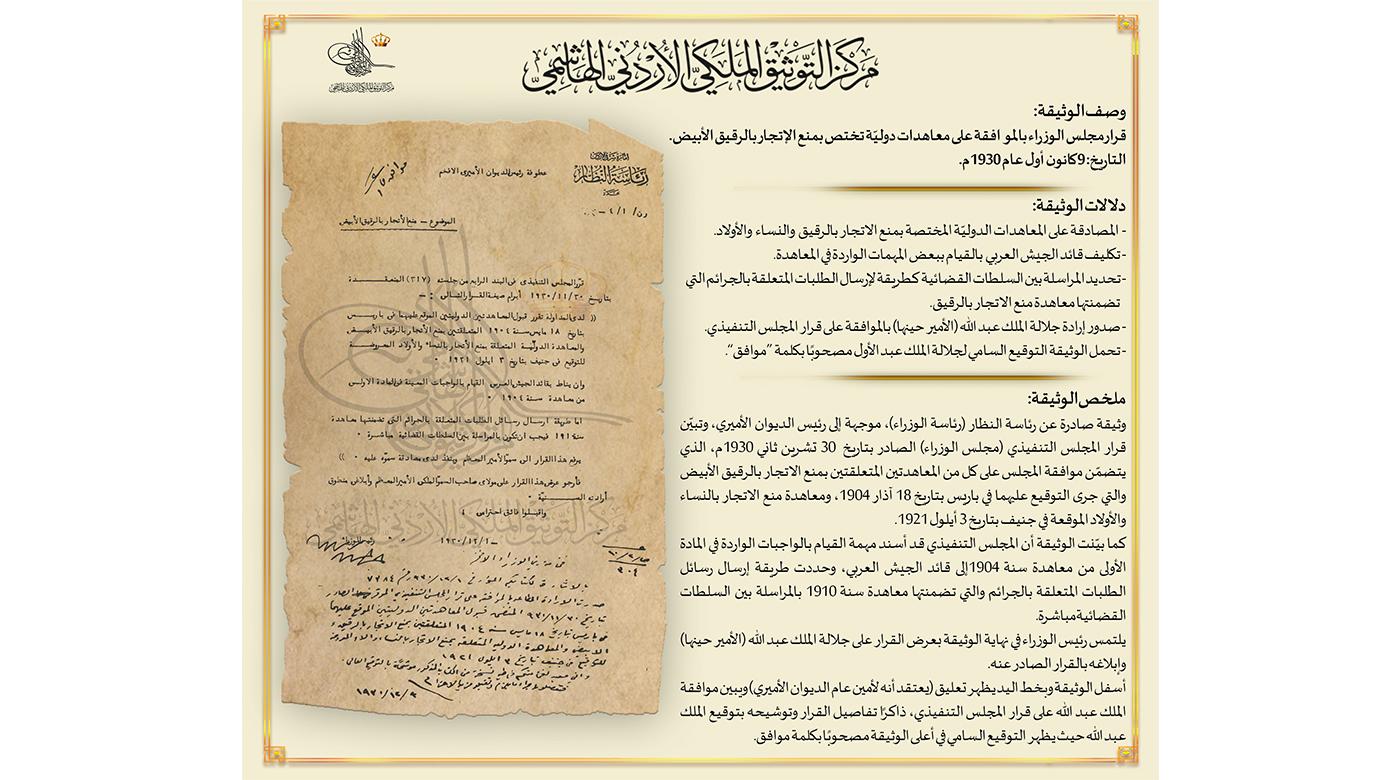 مركز التوثيق الملكي الأردني الهاشمي
مركز التوثيق الملكي الأردني الهاشمي
وصف الوثيقة:
قرار مجلس الوزراء بالموافقة على معاهدات دوليّة تختص بمنع الإتجار بالرقيق الأبيض.
التاريخ: 9 كانون أول عام 1930م.
دلالات الوثيقة:
- المصادقة على المعاهدات الدوليّة المختصة بمنع الاتجار بالرقيق والنساء والأولاد.
- تكليف قائد الجيش العربي بالقيام ببعض المهمات الواردة في المعاهدة.
- تحديد المراسلة بين السلطات القضائية كطريقة لإرسال الطلبات المتعلقة بالجرائم التي
تضمنتها معاهدة منع الاتجار بالرقيق.
- صدور إرادة جلالة الملك عبد الله (الأمير حينها) بالموافقة على قرار المجلس التنفيذي.
- تحمل الوثيقة التوقيع السامي لجلالة الملك عبد الأول مصحوبًا بكلمة "موافق".
ملخص الوثيقة:
وثيقة صادرة عن رئاسة النظار (رئاسة الوزراء)، موجهة إلى رئيس الديوان الأميري، وتبيّن
قرار المجلس التنفيذي (مجلس الوزراء) الصادر بتاريخ 30 تشرين ثاني 1930م، الذي
يتضمّن موافقة المجلس على كل من المعاهدتين المتعلقتين بمنع الاتجار بالرقيق الأبيض
والتي جرى التوقيع عليهما في باريس بتاريخ 18 آذار 1904، ومعاهدة منع الاتجار بالنساء
والأولاد الموقعة في جنيف بتاريخ 3 أيلول 1921.
كما بيّنت الوثيقة أن المجلس التنفيذي قد أسند مهمة القيام بالواجبات الواردة في المادة
الأولى من معاهدة سنة 1904 إلى قائد الجيش العربي، وحددت طريقة إرسال رسائل
الطلبات المتعلقة بالجرائم والتي تضمنتها معاهدة سنة 1910 بالمراسلة بين السلطات
القضائية مباشرة.
يلتمس رئيس الوزراء في نهاية الوثيقة بعرض القرار على جلالة الملك عبد الله (الأمير حينها)
وإبلاغه بالقرار الصادر عنه.
أسفل الوثيقة وبخط اليد يظهر تعليق (يعتقد أنه لأمين عام الديوان الأميري) ويبين موافقة
الملك عبد الله على قرار المجلس التنفيذي، ذاكرًا تفاصيل القرار وتوشيحه بتوقيع الملك
عبد الله حيث يظهر التوقيع السامي في أعلى الوثيقة مصحوبًا بكلمة موافق.
رئاسة النظار
عطوفة رئيس الديوان الأميري الافخم
الموضوع – منع الأتجار بالرقيق الأبيض
قرر المجلس التنفيذي في البند الرابع من جلسته (٣١٧) المنعقدة
بتاريخ ١٩٣٠/١١/٣٠ أبرام صيغة القرار التالي : –
(( لدى المداولة تقرر قبول المعاهدتين الدوليتين الموقع عليهما في باريس
بتاريخ ١٨ مايس سنة ١٩٠٤ المتعلقتين بمنع الأتجار بالرقيق الأبيض
والمعاهدة الدولية المتعلقة بمنع الأتجار بالنساء والأولاد المعروضة
للتوقيع في جنيف بتاريخ ٣ ايلول ١٩٢١ ٠
وان يناط بقائد الجيش العربي القيام بالواجبات المعينة في المادة الاولى
من معاهدة سنة ١٩٠٤ ٠
اما طريقة ارسال رسائل الطلبات المتعلقة بالجرائم التي تضمنتها معاهدة
فيجب ان تكون بالمراسلة بين السلطات القضائية مباشرة ٠
يرفع هذا القرار الى سمو الأمير المعظم وينفذ لدى مصادقة سموه عليه ٠ ))
فأرجو عرض هذا القرار على مولاي صاحب السمو الملكي الأمير المعظم وأبلاغي منطوق
أرادته السنية ٠
واقبلوا فائق احترامي ٤